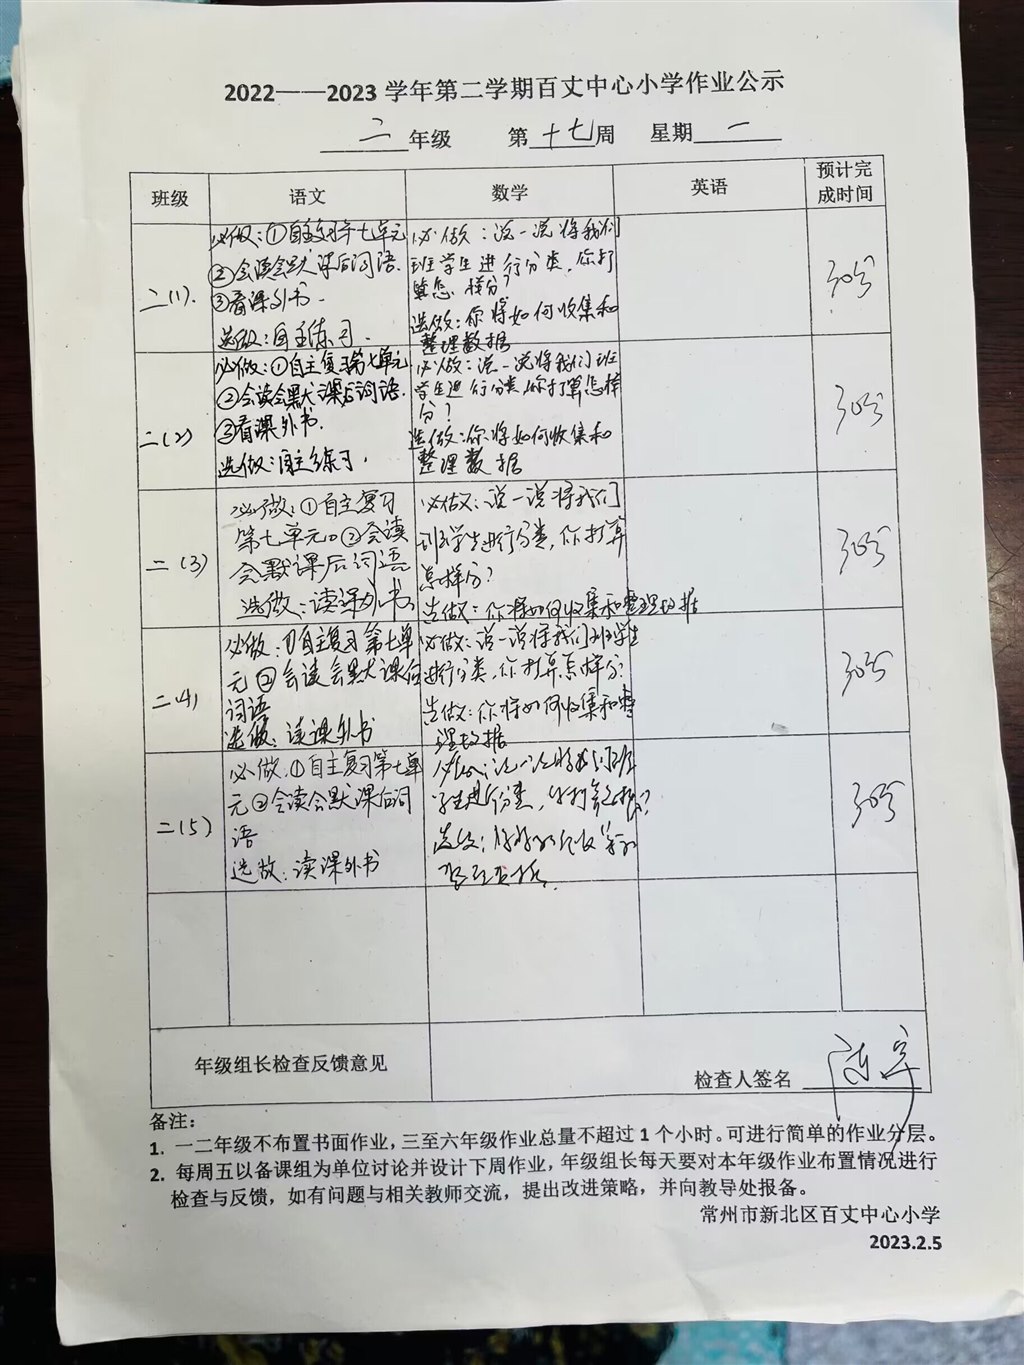 2022——2023 学年第二学期百丈中心小学作业公示
二 年级 第 十七 周 星期 一
班级 语文 数学 英语 预计完成时间
二(1).
必做：①自主复习第七单元
②会读会默课后词语.
③看课外书.
选做：自主练习.
必做：说一说将我们
班学生进行分类，你打
算怎样分？
选做：你将如何收集和
整理数据
30分
二(2)
必做：①自主复习第七单元
②会读会默课后词语.
③看课外书.
选做：自主练习.
必做：说一说将我们班
学生进行分类，你打算怎样
分？
选做：你将如何收集和
整理数据
30分
二(3)
必做：①自主复习
第七单元。②会读
会默课后词语
选做：读课外书
必做：说一说将我们
班学生进行分类，你打算
怎样分？
选做：你将如何收集和整理数据
30分
二(4)
必做：①自主复习第七单
元②会读会默课后
词语
选做：读课外书
必做：说一说将我们班学生
进行分类，你打算怎样分
选做：你将如何收集和整
理数据
30分
二(5)
必做：①自主复习第七单
元②会读会默课后词
语
选做：读课外书
必做：说一说将我们班
学生进行分类，你打算怎样？
选做：你将如何收集和
整理数据.
30分
年级组长检查反馈意见
检查人签名
备注：
1. 一二年级不布置书面作业，三至六年级作业总量不超过 1 个小时。可进行简单的作业分层。
2. 每周五以备课组为单位讨论并设计下周作业，年级组长每天要对本年级作业布置情况进行
检查与反馈，如有问题与相关教师交流，提出改进策略，并向教导处报备。
常州市新北区百丈中心小学
2023.2.5